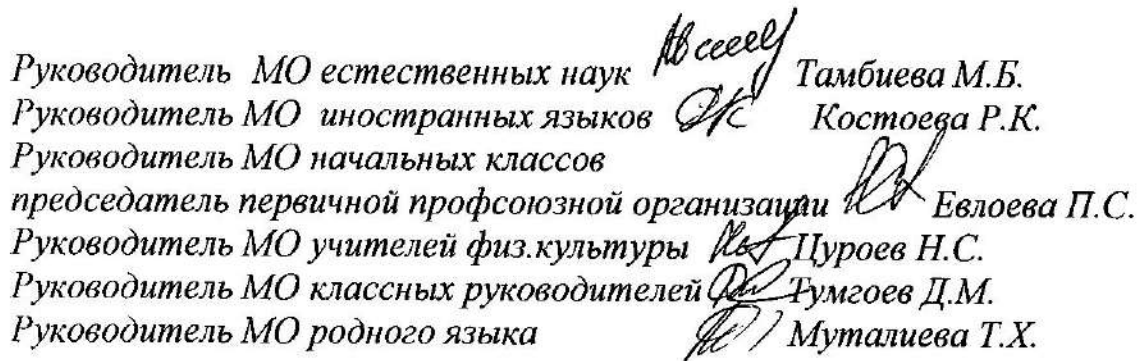 Руководитель МО естественных наук Тамбиева М.Б.
Руководитель МО иностранных языков Костоева Р.К.
Руководитель МО начальных классов
председатель первичной профсоюзной организации Евлоева П.С.
Руководитель МО учителей физ.культуры Цуроев Н.С.
Руководитель МО классных руководителей Тумгоев Д.М.
Руководитель МО родного языка Муталиева Т.Х.